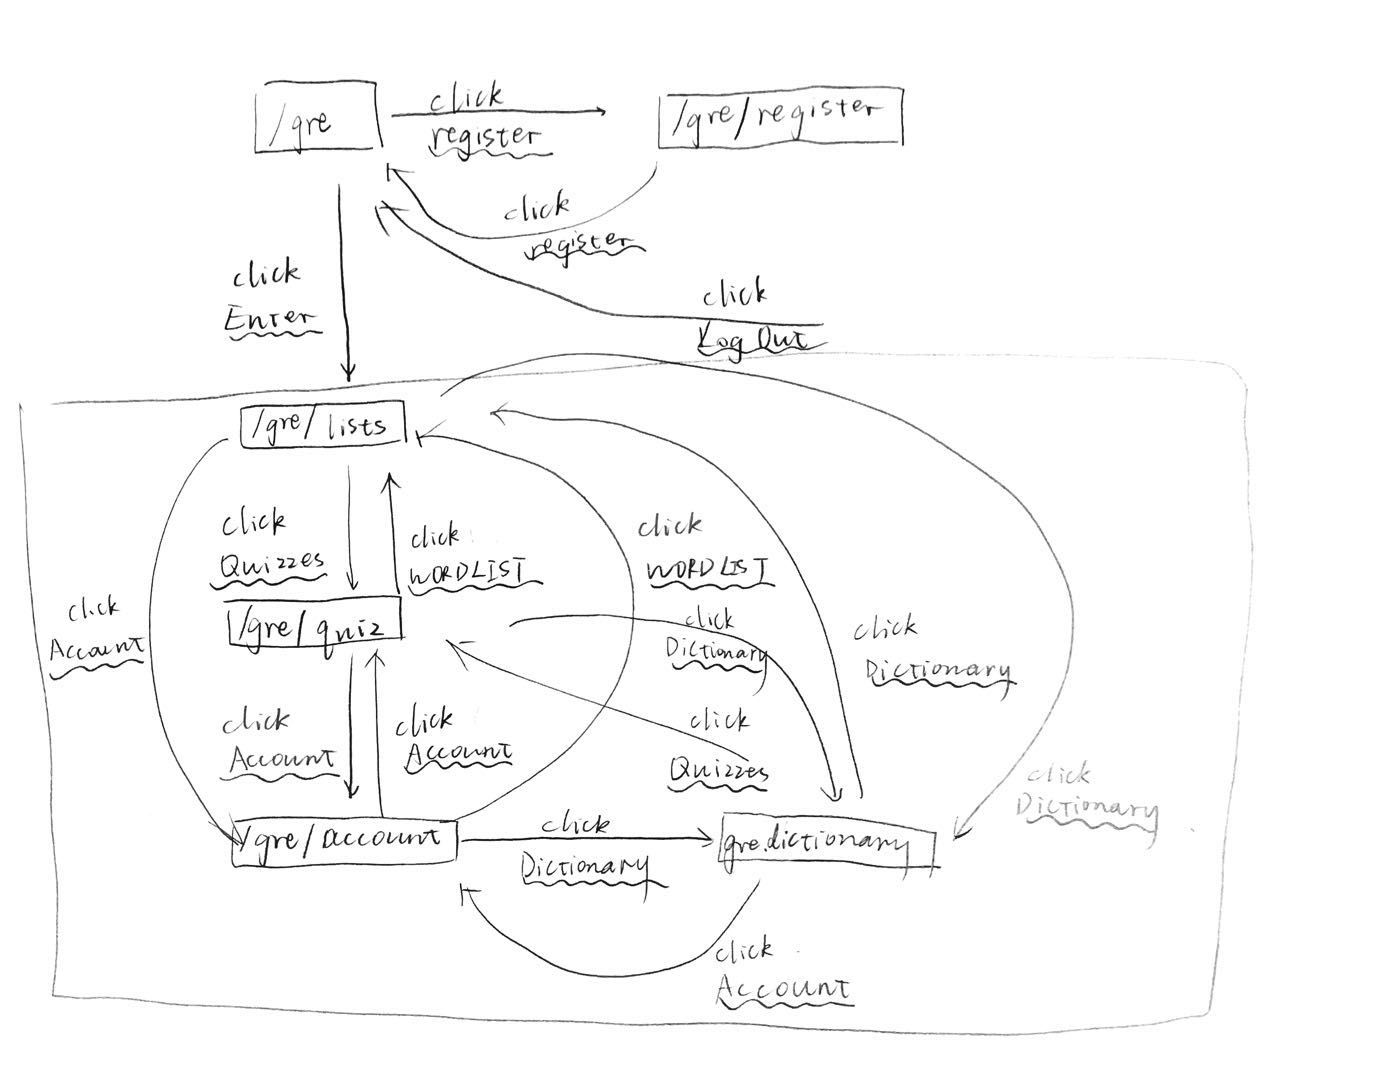 /gre
click
register
/gre/register
click
register
click
Enter
click
Log Out
/gre/lists
click
Quizzes
click
WORDLIST
click
WORDLIST
click
Account
/gre/quiz
click
Dictionary
click
Dictionary
click
Account
click
Account
click
Quizzes
click
Dictionary
/gre/account
click
Dictionary
gre.dictionary
click
Account